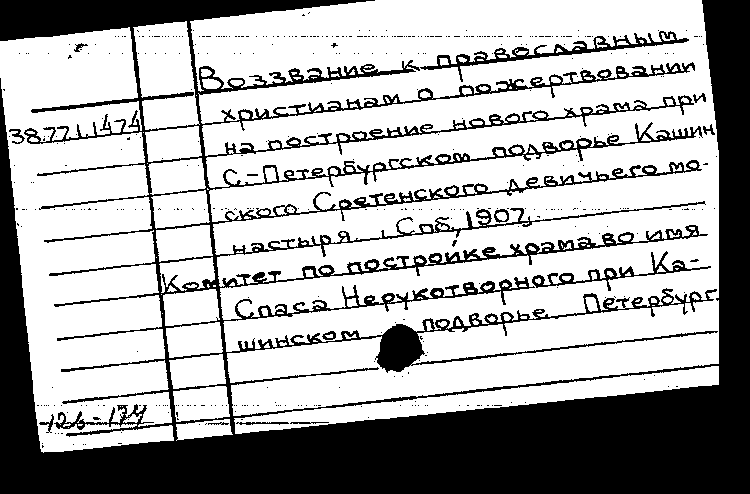 Воззвание к православным
христианам о пожертвовании
38.771.1474
на построение нового храма при
С.-Петербургском подворье Кашин
ского Сретенского девичьего мо-
настыря. , Спб, 1907,
Комитет по постройке храма во имя
Спаса Нерукотворного при Ка-
шинском подворье. Петербург.
174